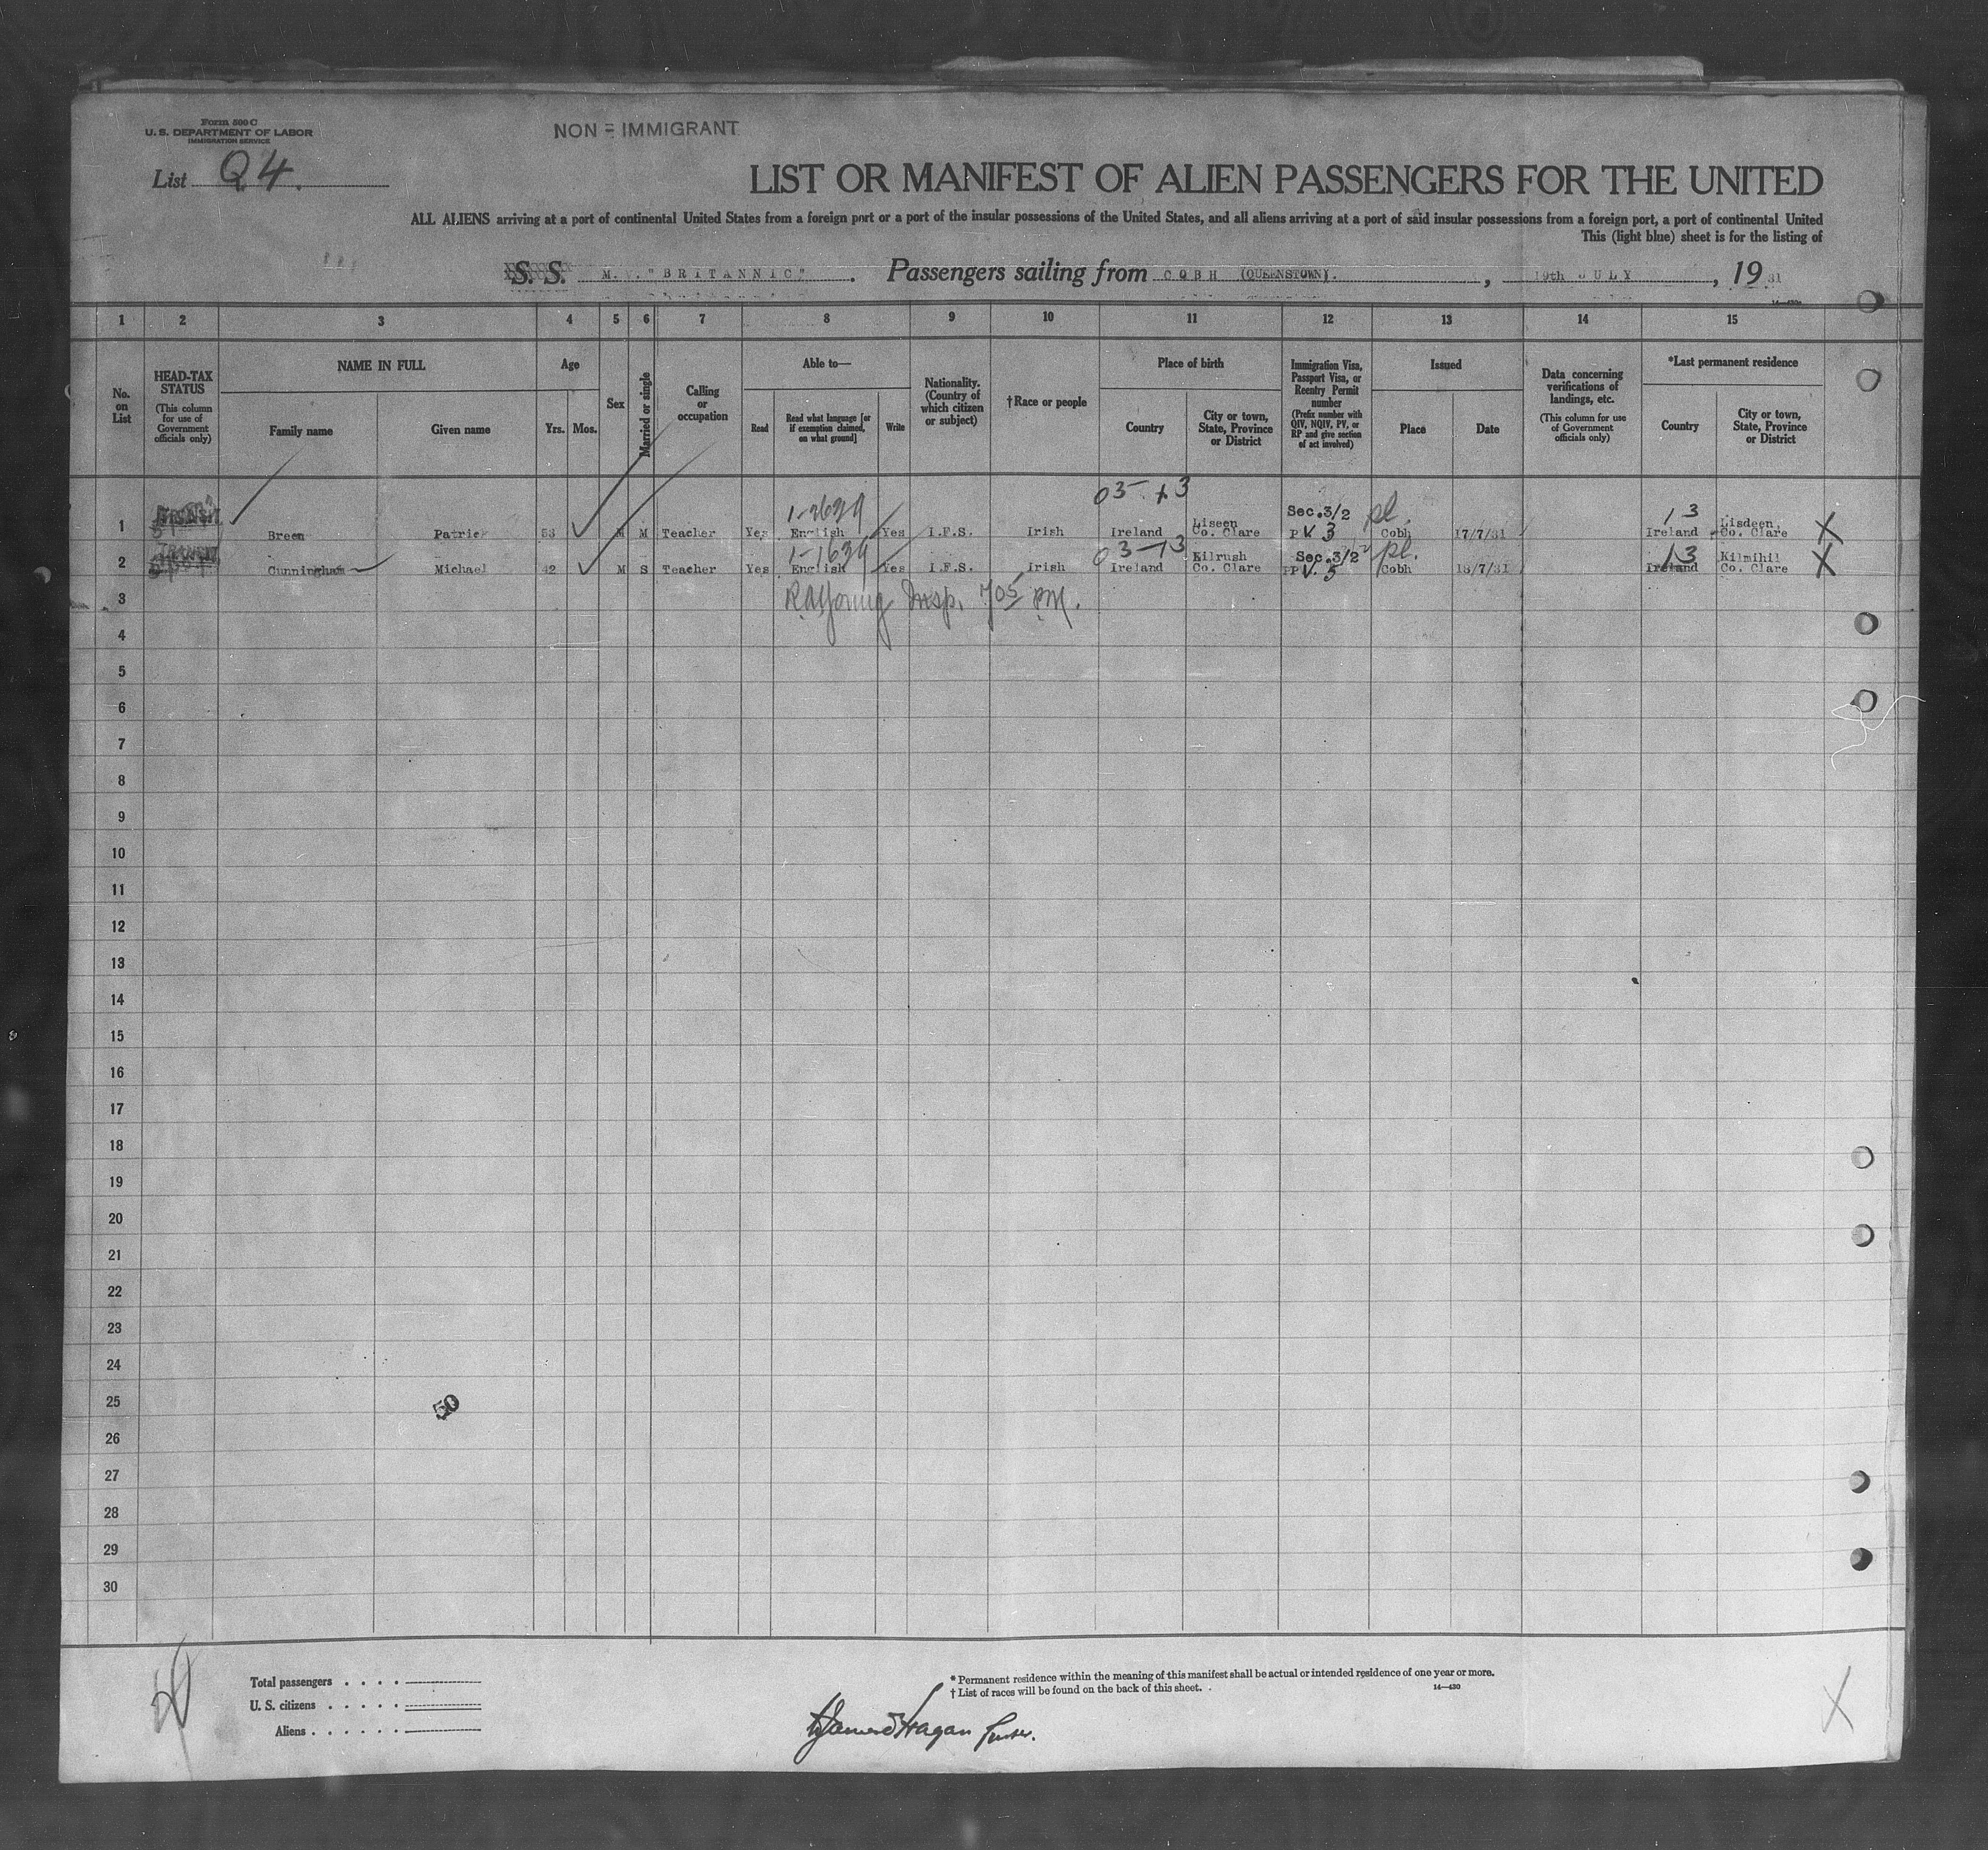 Form 500 C
U. S. DEPARTMENT OF LABOR
IMMIGRATION SERVICE
NON = IMMIGRANT
List Q4.
LIST OR MANIFEST OF ALIEN PASSENGERS FOR THE UNITED
ALL ALIENS arriving at a port of continental United States from a foreign port or a port of the insular possessions of the United States, and all aliens arriving at a port of said insular possessions from a foreign port, a port of continental United
This (light blue) sheet is for the listing of
S. S. M. V. "BRITANNIC". Passengers sailing from COBH (QUEENSTOWN). , 19th JULY , 19 31
1 2 3 4 5 6 7 8 9 10 11 12 13 14 15
No. on List
HEAD-TAX STATUS (This column for use of Government officials only)
NAME IN FULL
Family name Given name
Age
Yrs. Mos.
Sex
Married or single
Calling or occupation
Able to—
Read Read what language [or if exemption claimed, on what ground] Write
Nationality. (Country of which citizen or subject)
†Race or people
Place of birth
Country City or town, State, Province or District
Immigration Visa, Passport Visa, or Reentry Permit number (Prefix number with QIV, NQIV, PV, or RP and give section of act involved)
Issued
Place Date
Data concerning verifications of landings, etc. (This column for use of Government officials only)
*Last permanent residence
Country City or town, State, Province or District
03-13
1-2639 Sec.3/2 pl. 13
1 TRANSIT Breen Patrick 53 M M Teacher Yes English Yes I.F.S. Irish Ireland Liseen Co. Clare PV 3 Cobh 17/7/31 Ireland Lisdeen, Co. Clare X
1-1639 03-13 Sec.3/2 pl. 13
2 TRANSIT Cunningham Michael 42 M S Teacher Yes English Yes I.F.S. Irish Ireland Kilrush Co. Clare PV. 5 Cobh 18/7/31 Ireland Kilmihil Co. Clare X
3 Insp. 705 PM.
4
5
6
7
8
9
10
11
12
13
14
15
16
17
18
19
20
21
22
23
24
25
50
26
27
28
29
30
Total passengers . . . .
U. S. citizens . . . . .
Aliens . . . . . .
* Permanent residence within the meaning of this manifest shall be actual or intended residence of one year or more.
† List of races will be found on the back of this sheet.
14—430
X
Purser.